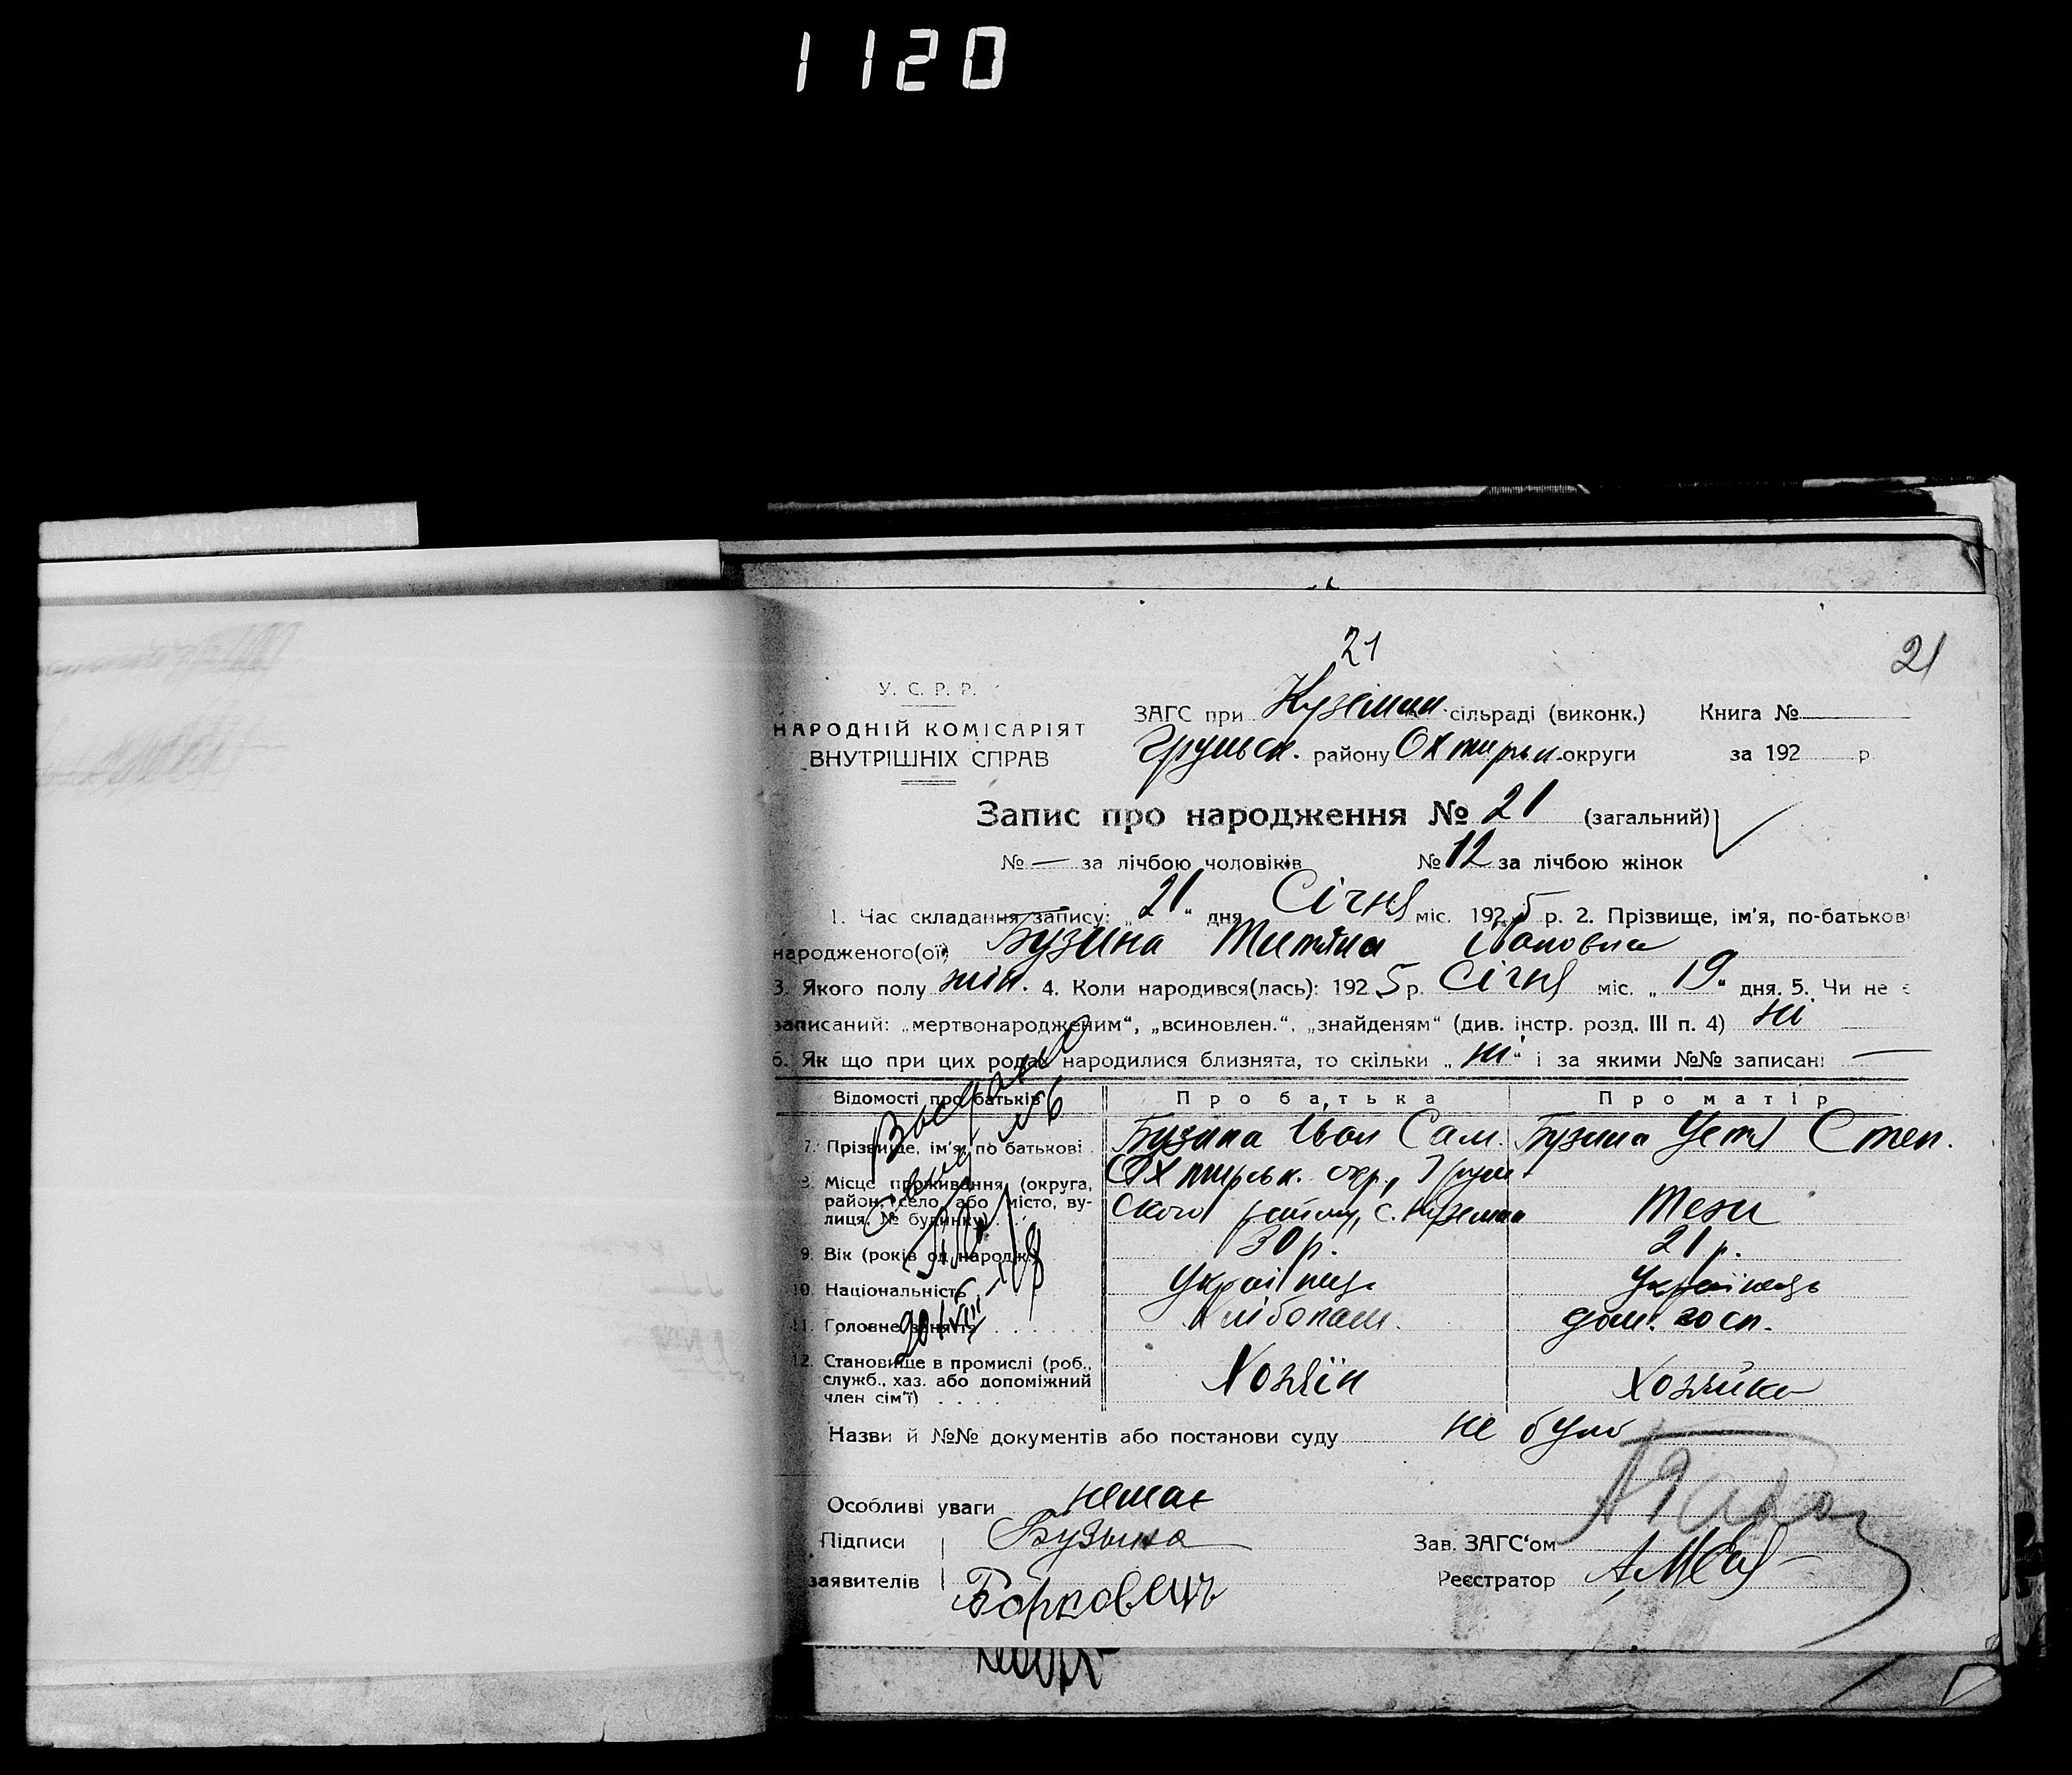 1120
21
21
У. С. Р. Р.
НАРОДНІЙ КОМІСАРІЯТ
ВНУТРІШНІХ СПРАВ
ЗАГС при Куземин. сільраді (виконк.) Книга №
Грунськ. району Охтирськ. округи за 192 р.
Запис про народження № 21 (загальний)
№ — за лічбою чоловіків № 12 за лічбою жінок
1. Час складання запису: „21“ дня Січня міс. 1925 р. 2. Прізвище, ім'я, по-батькові
народженого(ої) Бузина Титяна Івановна
3. Якого полу жін. 4. Коли народився(лась): 1925 р. Січня міс. „19“ дня. 5. Чи не є
записаний: „мертвонародженим“, „всиновлен.“, „знайденям“ (див. інстр. розд. III п. 4) ні
6. Як що при цих родах народилися близнята, то скільки „ні“ і за якими №№ записані —
Відомості про батьків Про батька Про матір
7. Прізвище, ім'я, по батькові Бузина Іван Сам. Бузина Устя Степ.
8. Місце проживання (округа, район, село або місто, ву-
лиця, № будинку) Охтирськ. окр., Грун-
ського району, с. Куземин Тежи
9. Вік (років од народж.) 30 р. 21 р.
10. Національність Українець Українець
11. Головне заняття Хлібопаш. дом. госп.
12. Становище в промислі (роб.,
служб., хаз. або допоміжний
член сім'ї) Хозяїн Хозяйка
Назви й №№ документів або постанови суду не було
Особливі уваги немає
Підписи Бузына Зав. ЗАГС'ом
заявителів Борковець Реєстратор